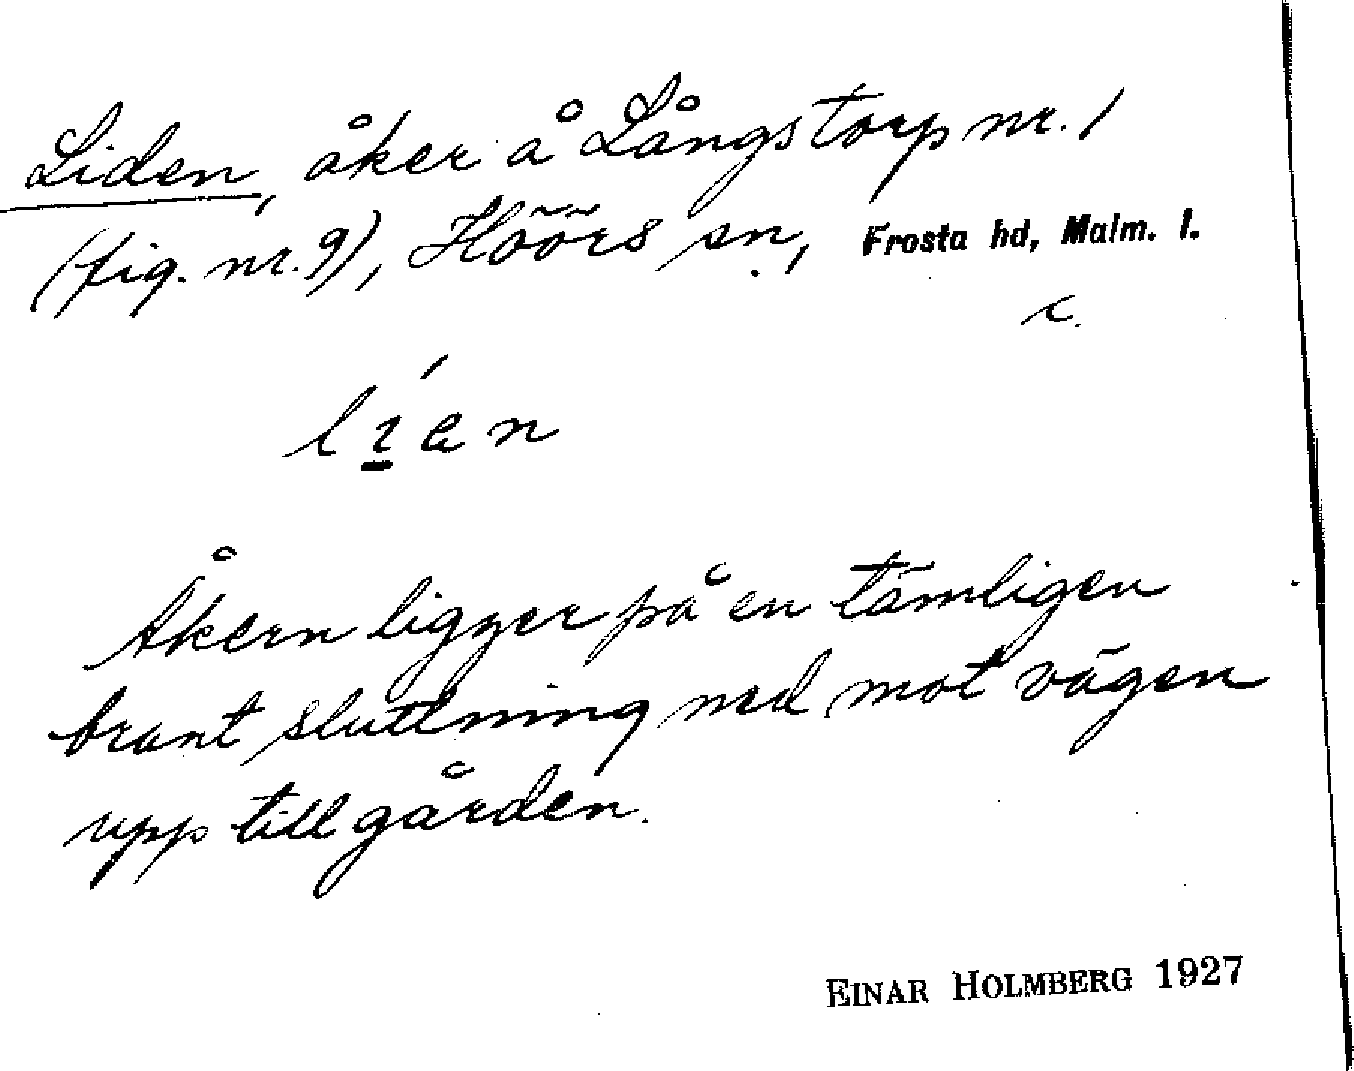 Liden, åker å Långstorp nr. 1
(fig. nr. 9), Höörs sn, Frosta hd, Malm. l.
c.
lían
Åkern ligger på en tämligen
brant sluttning ned mot vägen
upp till gården.
EINAR HOLMBERG 1927